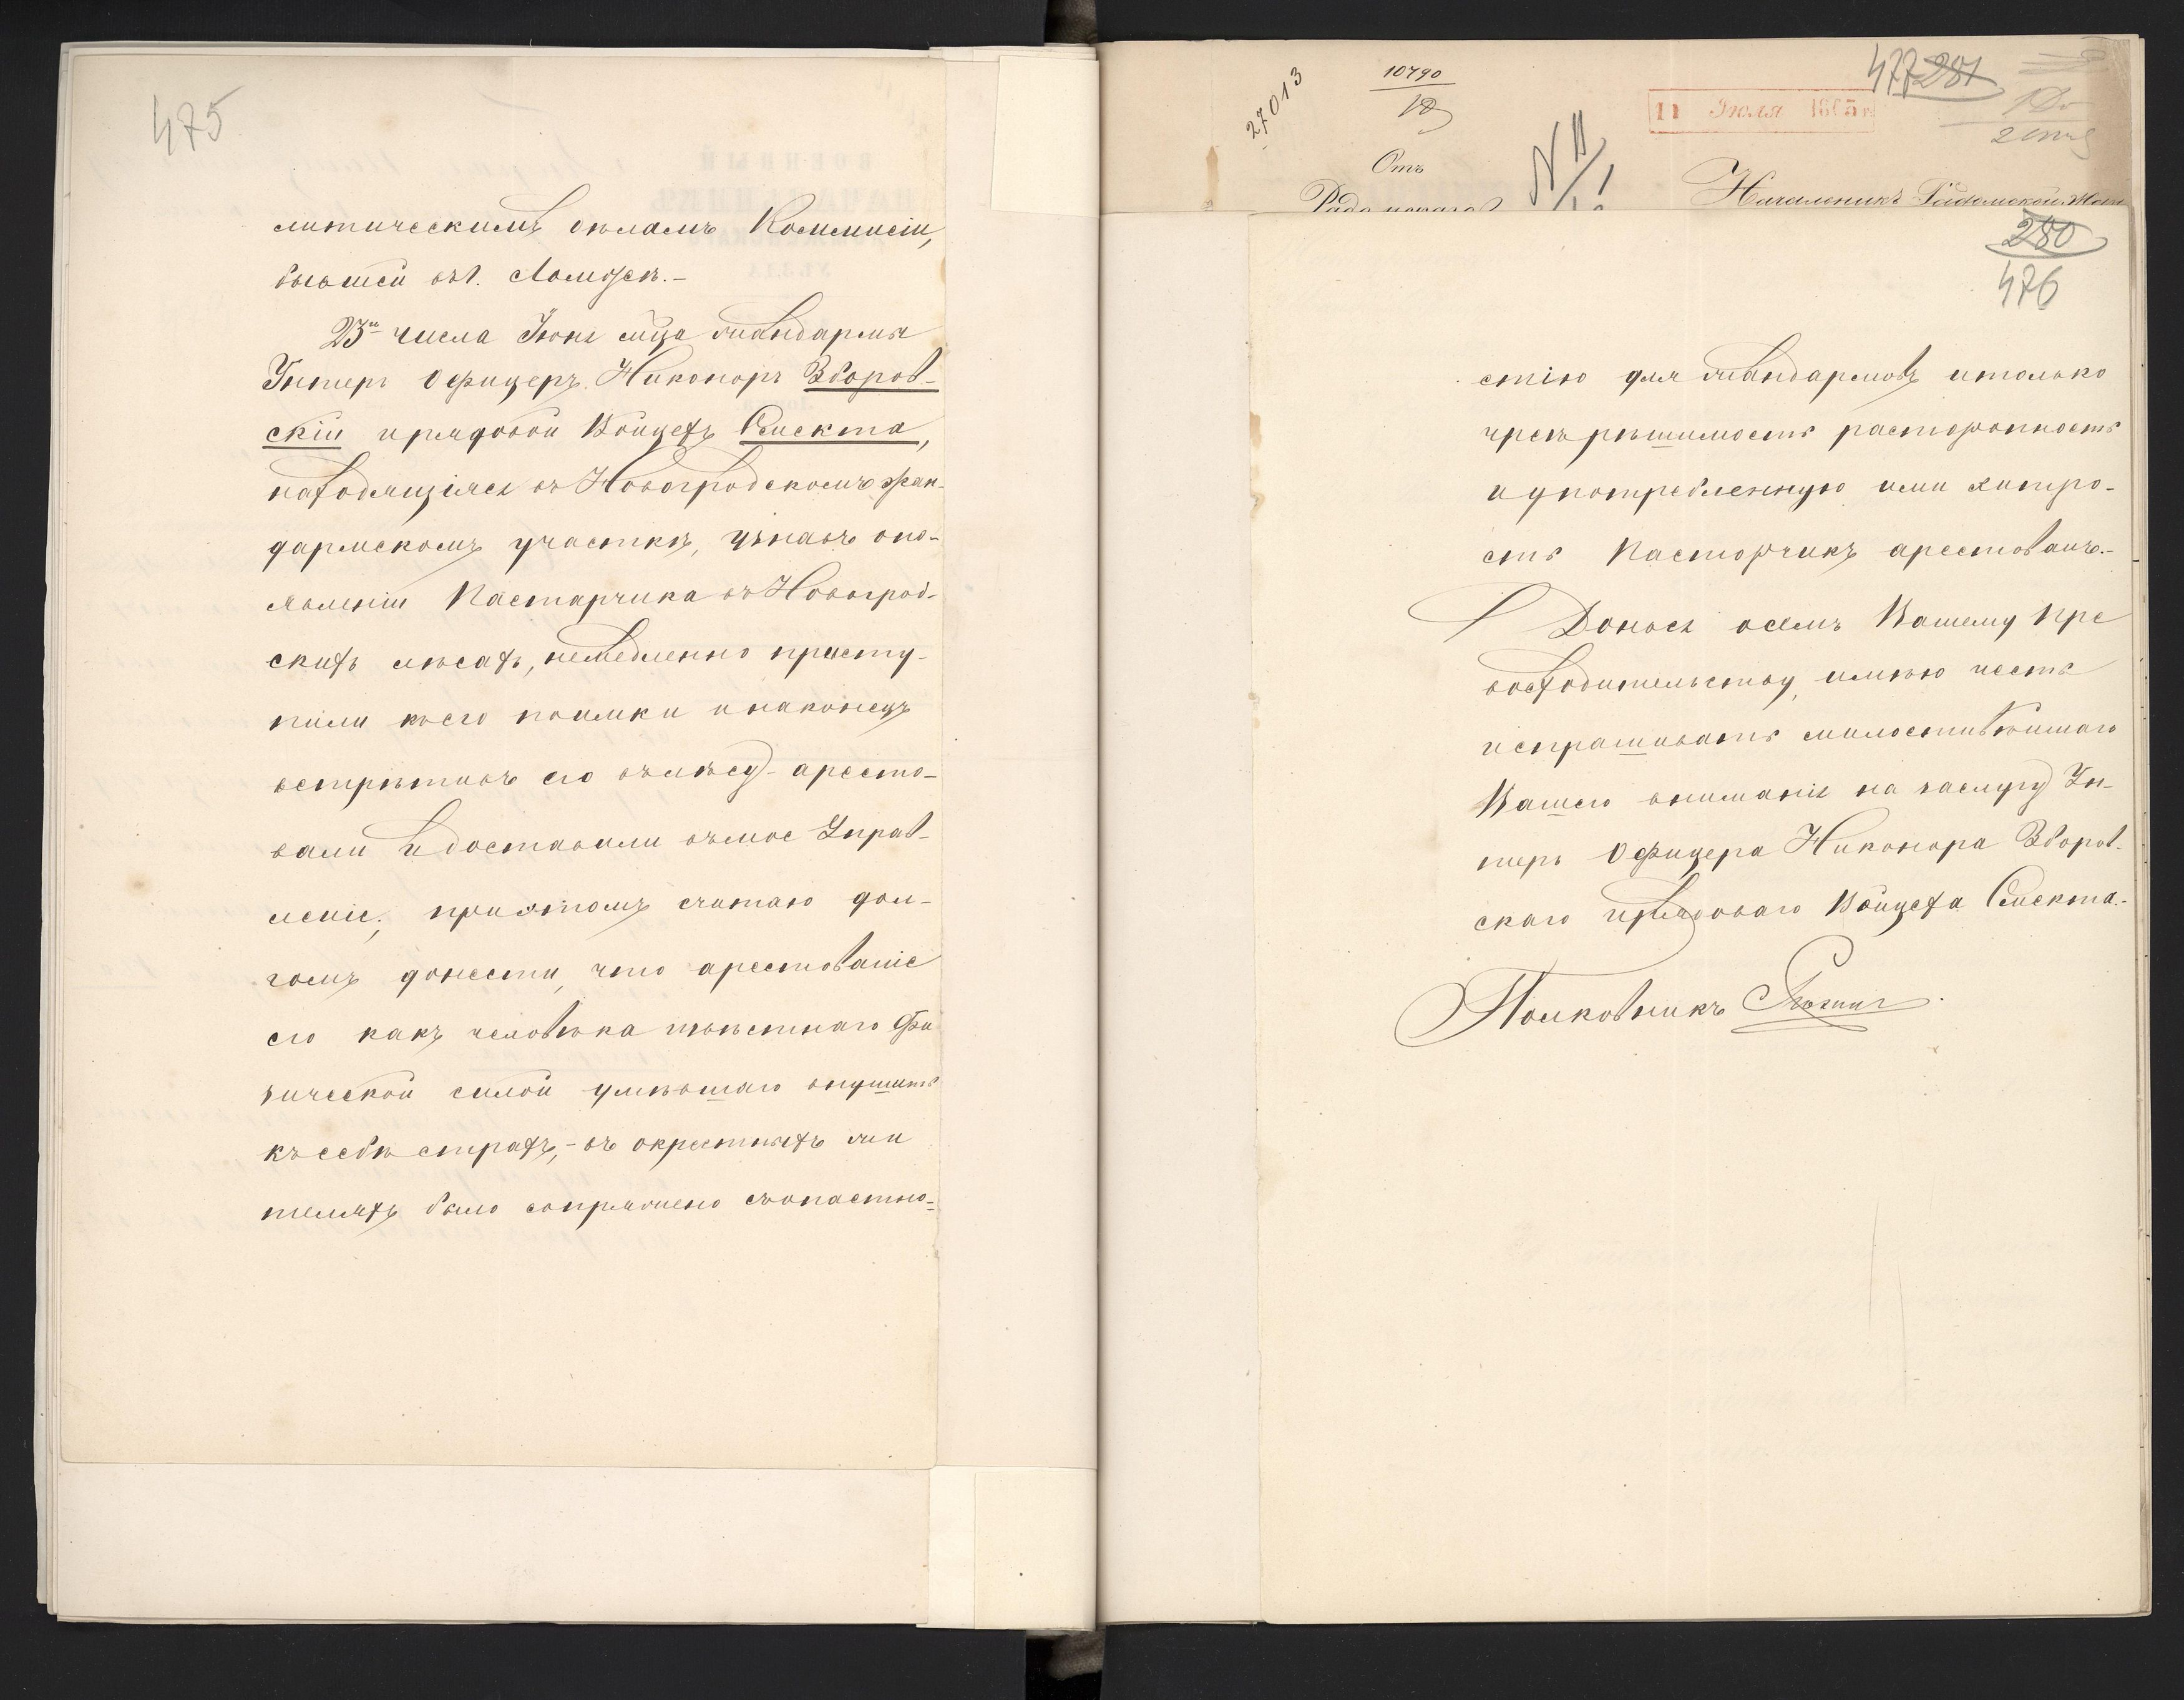 475
литическимъ дѣламъ Коммисіи,
бывшей въ г. Ломзѣ.-
23го числа Іюня м͠ца жандармы
Унтеръ Офицеръ Никоноръ Зворов-
скій и рядовой Войцехъ Смекта,
находящіеся въ Новогродскомъ жан-
дармскомъ участкѣ, узнавъ о по-
явленіи Пастарчика въ Новогрод-
скихъ лѣсахъ, немедленно присту-
пили къ его поимки и наконецъ
встрѣтивъ его въ лѣсу - аресто-
вали и доставили въ мое Управ-
леніе; при этомъ считаю дол-
гомъ донести, что арестованіе
его какъ человѣка извѣстнаго фи
зической силой умѣвшаго внушить
къ себѣ страхъ, - въ окрестныхъ жи
теляхъ было сопряжено съ опастно-
27013
10790
18
Отъ
N 11/1
11 Іюля 1865 г.
477 281
Начальникъ Радомской Жан
280
476
стію для жандармовъ и только
чрезъ рѣшимость расторопность
и употребленную ими хитро-
сть Пасторчикъ арестованъ.-
Донося о семъ Вашему Пре
восходительству, имѣю честь
испрашивать милостивѣйшаго
Вашего вниманія на заслугу Ун-
теръ Офицера Никонора Зворов-
скаго и рядоваго Войцеха Смекта.-
Полковникъ